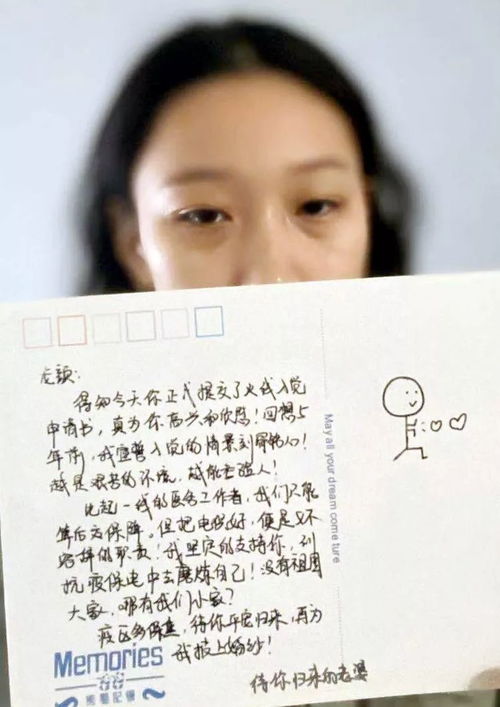 龙颖:
得知今天你正式提交了火线入党
申请书,真为你高兴和欣慰!回想5
年前,我宣誓入党的情景刻骨铭心!
越是艰苦的环境,越能考验人!
比起一线的医务工作者,我们只能
算后方保障。但把电保好,便是义不
容辞的职责!我坚定的支持你,到
抗疫保电中去磨炼自己!没有祖国
大家,哪有我们小家?
疫区多保重,待你平安归来,再为
我披上婚纱!
待你归来的老婆
May all your dream come ture
Memories
熊猫記憶